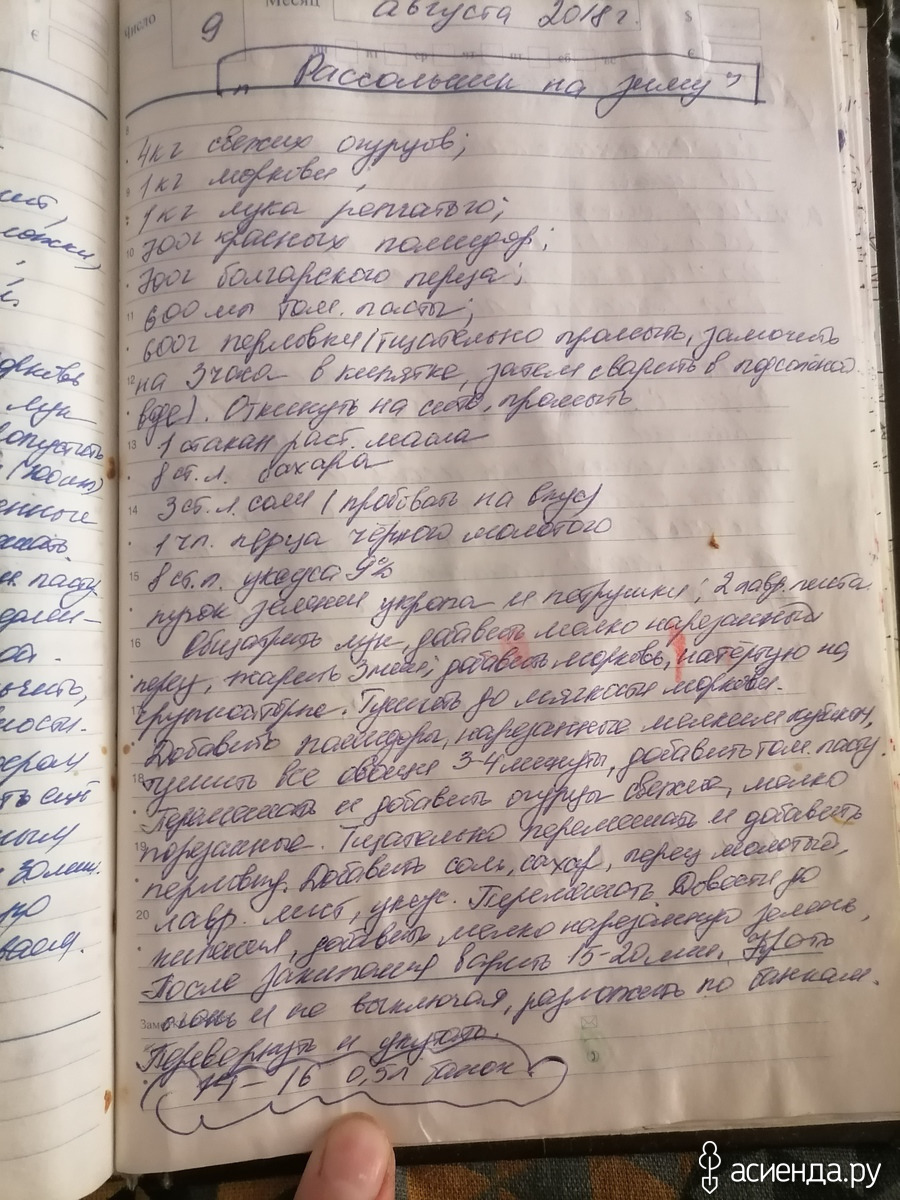 Число
9
Месяц
августа 2018 г.
$
€
€
пн вт ср чт пт сб вс
„Рассольник на зиму"
8
4 кг свежих огурцов;
9 1 кг моркови;
1 кг лука репчатого;
10 700г красных помидор;
700г болгарского перца;
11 600 мл том. пасты;
600г перловки (тщательно промыть, замочить
12 на 3 часа в кипятке, затем сварить в подсоленой
воде). Откинуть на сито, промыть
13 1 стакан раст. масла
8 ст. л. сахара
14 3 ст. л. соли (пробовать на вкус)
1 ч л. перца чёрного молотого
15 8 ст. л. уксуса 9%
пучок зелени укропа и петрушки; 2 лавр. листа
16 Обжарить лук, добавить мелко нарезанный
перец, жарить 3 мин; добавить морковь, натёртую на
17 крупной тёрке. Тушить до мягкости моркови.
Добавить помидоры, нарезанные мелким кубиком,
18 тушить все овощи 3-4 минуты, добавить том. пасту
Перемешать и добавить огурцы свежие, мелко
19 порезанные. Тщательно перемешать и добавить
перловку. Добавить соль, сахар, перец молотый,
20 лавр. лист, уксус. Перемешать Довести до
кипения, добавить мелко нарезанную зелень,
После закипания варить 15-20 мин.
огонь и не выключая, разложить по банкам.
Перевернуть и укутать.
– 16 0,5л банок.
ложки,
морковь
лук
опустить
пасту
ости.
ть ещё
30 мин.
асиенда.ру